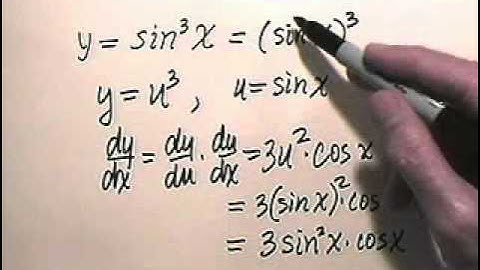 y = sin³x = (sin x)³
y = u³, u = sin x
dy/dx = dy/du · du/dx = 3u² · cos x
= 3(sin x)² · cos
= 3 sin²x · cos x